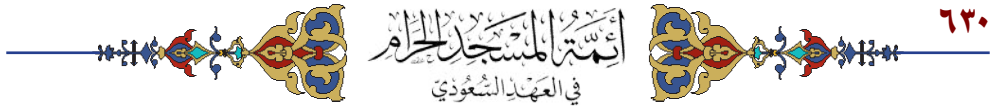 ٦٣٠
أَئِمَّةُ المَسْجِدِ الحَرَامِ
في العَهْدِ السُّعُودِيّ